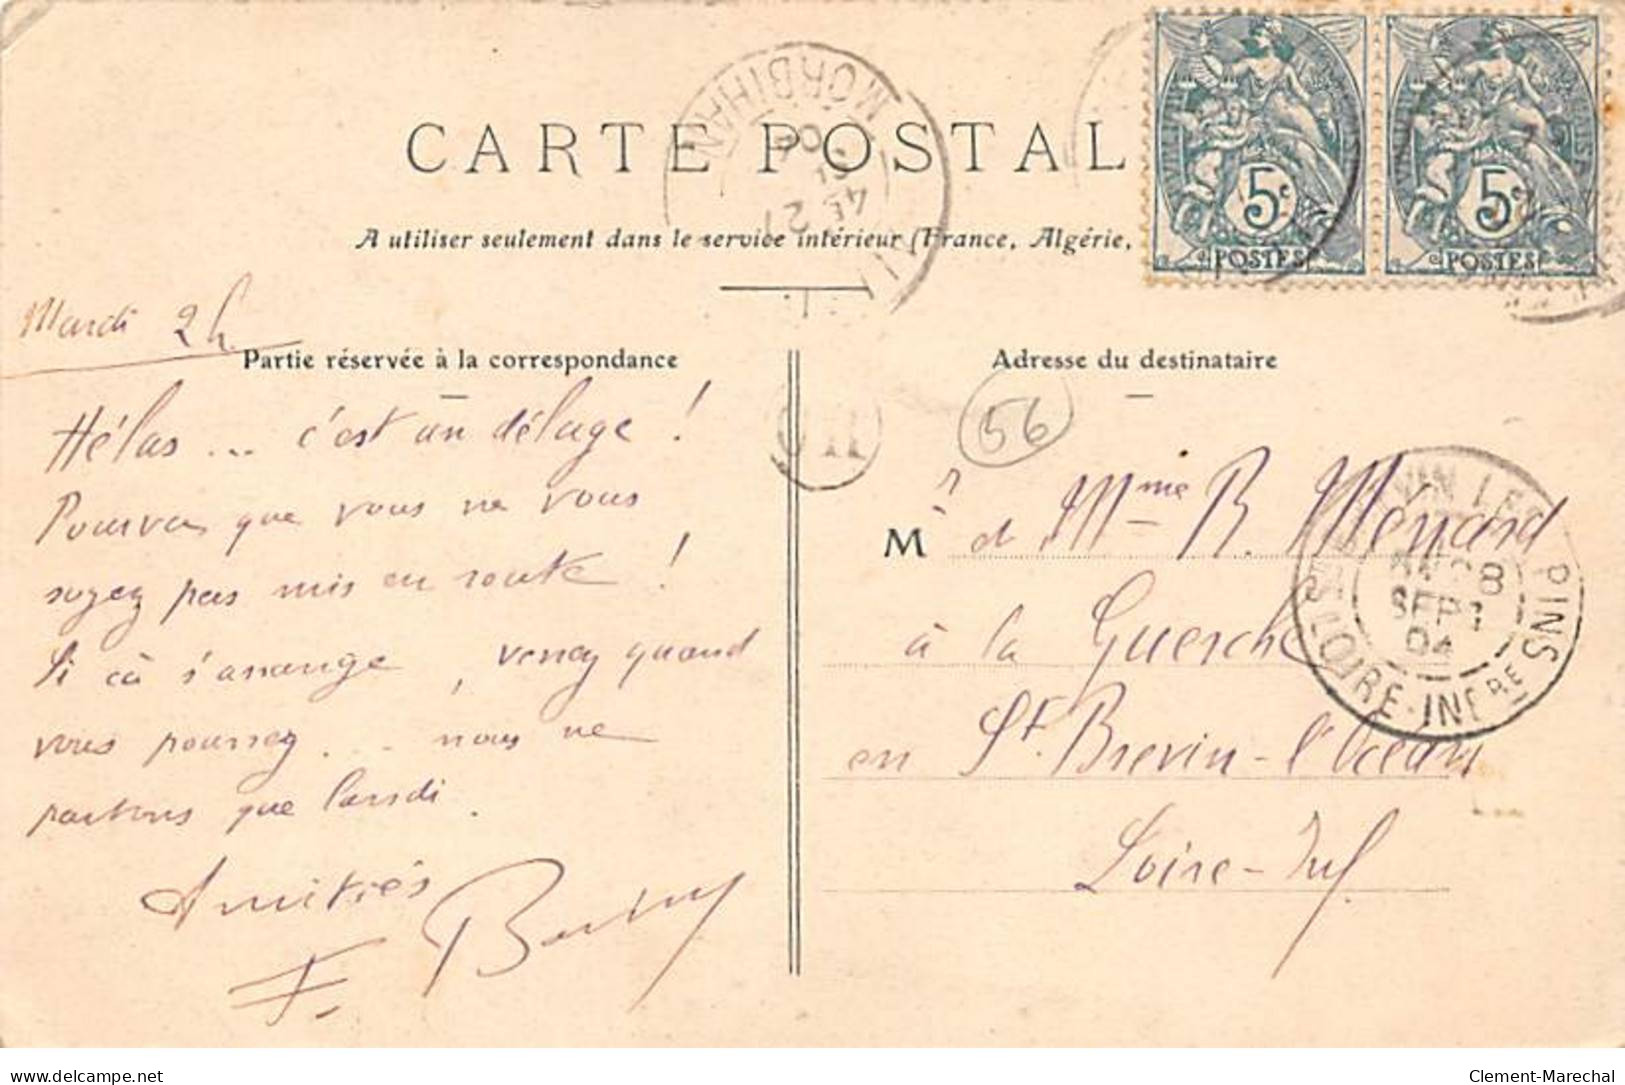 CARTE POSTAL
A utiliser seulement dans le service intérieur (France, Algérie,
5c
POSTES
5c
POSTES
MORBIHAN
Mardi 2h
Partie réservée à la correspondance
Hélas ... c'est un déluge !
Pourvu que vous ne vous
soyez pas mis en route !
Si cà s'arrange, venez quand
vous pourrez ... nous ne
partons que lundi.
Amitiés
F.
Adresse du destinataire
56
M r et Mme R. Ménard
à la Guerche
en St. Brevin-l'Océan
Loire-Inf
VIN LES PINS
28
SEPT
04
LOIRE-INFRE
delcampe.net
Clement-Marechal